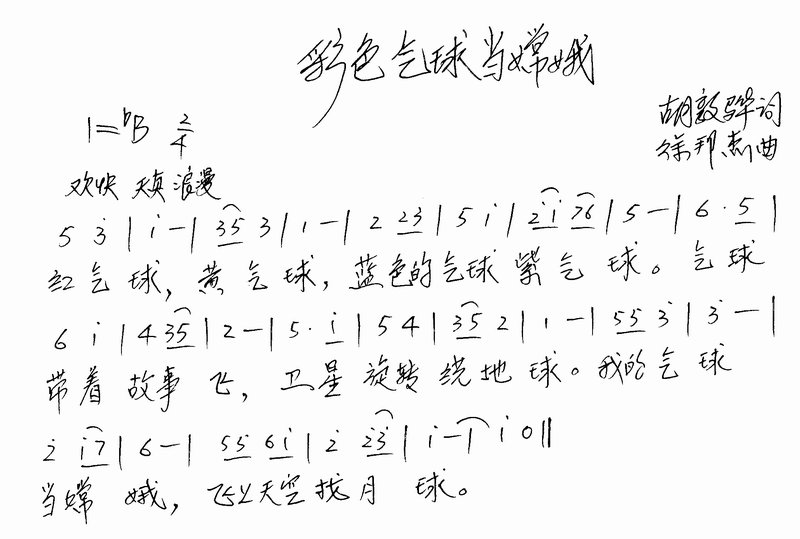 彩色气球当嫦娥
1=♭B 2/4
胡敦骅词
徐邦杰曲
欢快 天真 浪漫
5 3̇ | i̇ - | 35 3 | 1 - | 2 23 | 5 i̇ | 2̇i̇ 76 | 5 - | 6 · 5 |
红气球，黄气球，蓝色的气球紫气球。气球
6 i̇ | 4 35 | 2 - | 5 · i̇ | 5 4 | 35 2 | 1 - | 55 3̇ | 3̇ - |
带着故事飞，卫星旋转绕地球。我的气球
2̇ i̇7 | 6 - | 55 6i̇ | 2̇ 2̇3̇ | i̇ - | i̇ 0 ‖
当嫦娥，飞上天空找月球。